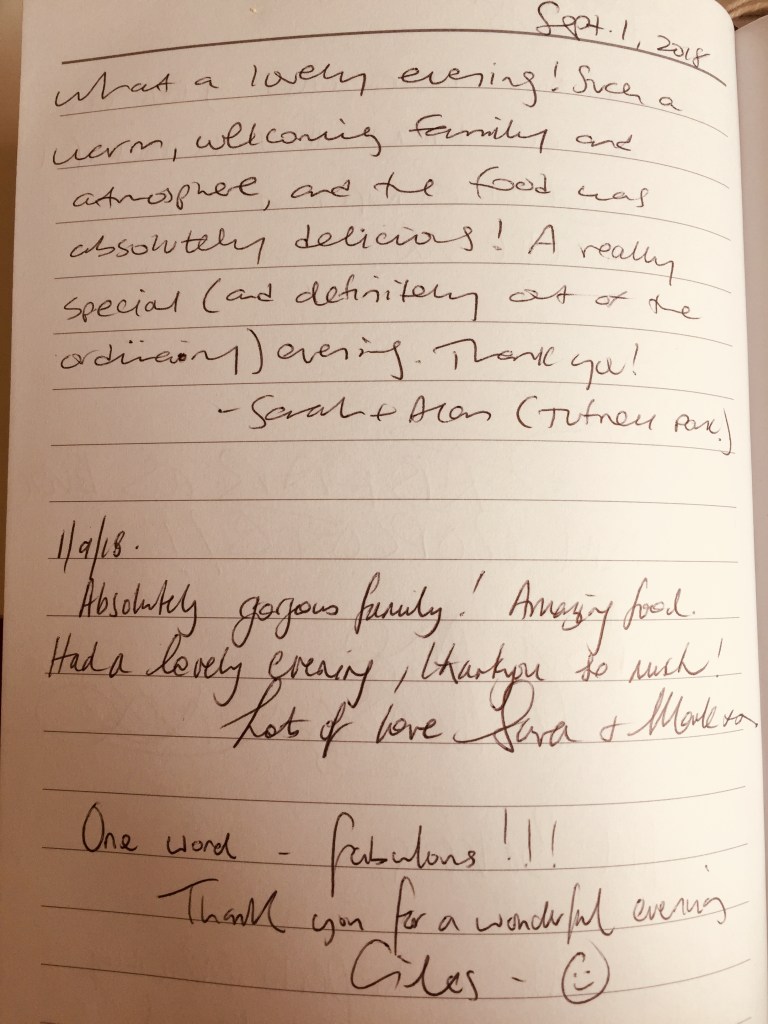 Sept. 1, 2018
What a lovely evening! Such a
warm, welcoming family and
atmosphere, and the food was
absolutely delicious! A really
special (and definitely out of the
ordinary) evening. Thank you!
- Sarah + Alan (Tufnell Park)
1/9/18.
Absolutely gorgous family! Amazing food.
Had a lovely evening, thankyou so much!
Lots of love Sara + Mark xx
One word - fabulous!!!
Thank you for a wonderful evening
Giles - ☺